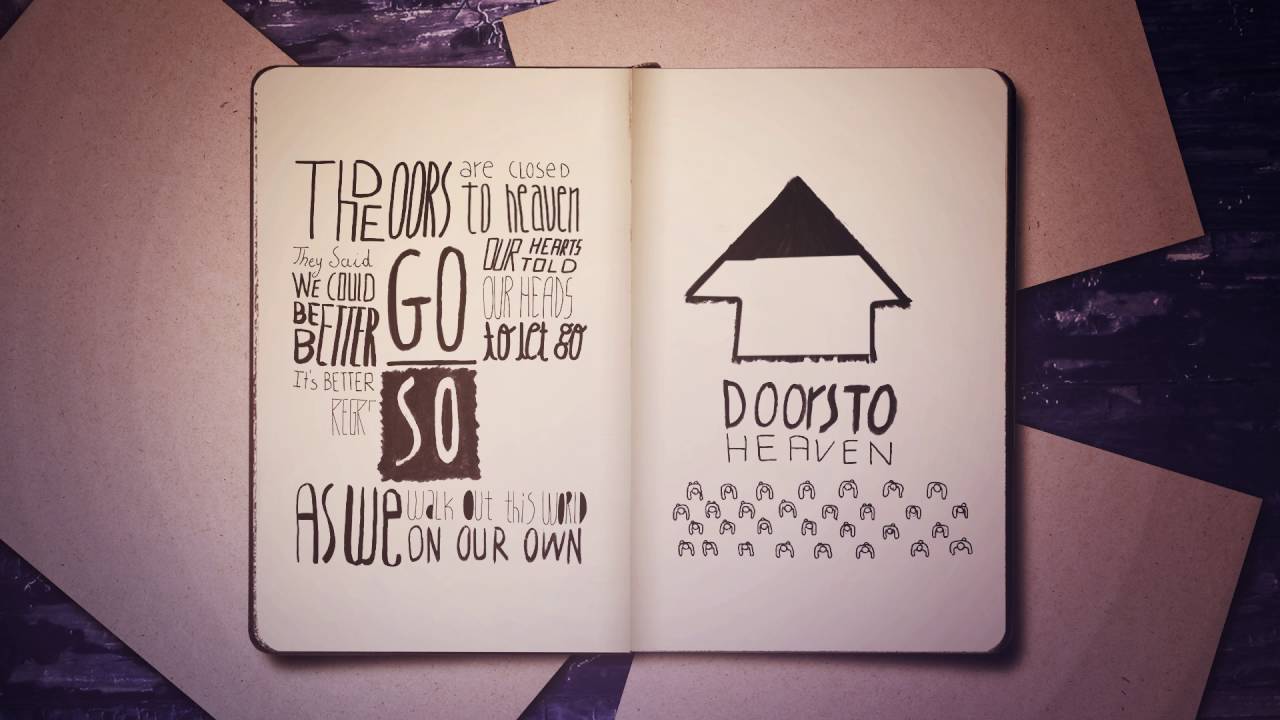 THE DOORS are CLOSED
to heaven
They Said
WE COULD
BE
BETTER
GO
OUR HEARTS
TOLD
OUR HEADS
to let go
It's BETTER
SO
AS we walk out this WORLD
ON OUR OWN
DOORS TO
HEAVEN